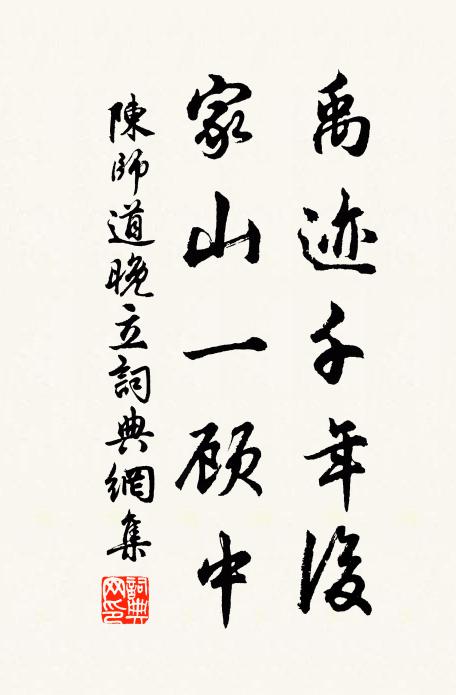 禹迹千年後
家山一顾中
陳師道晚立詞典網集
詞典
网印